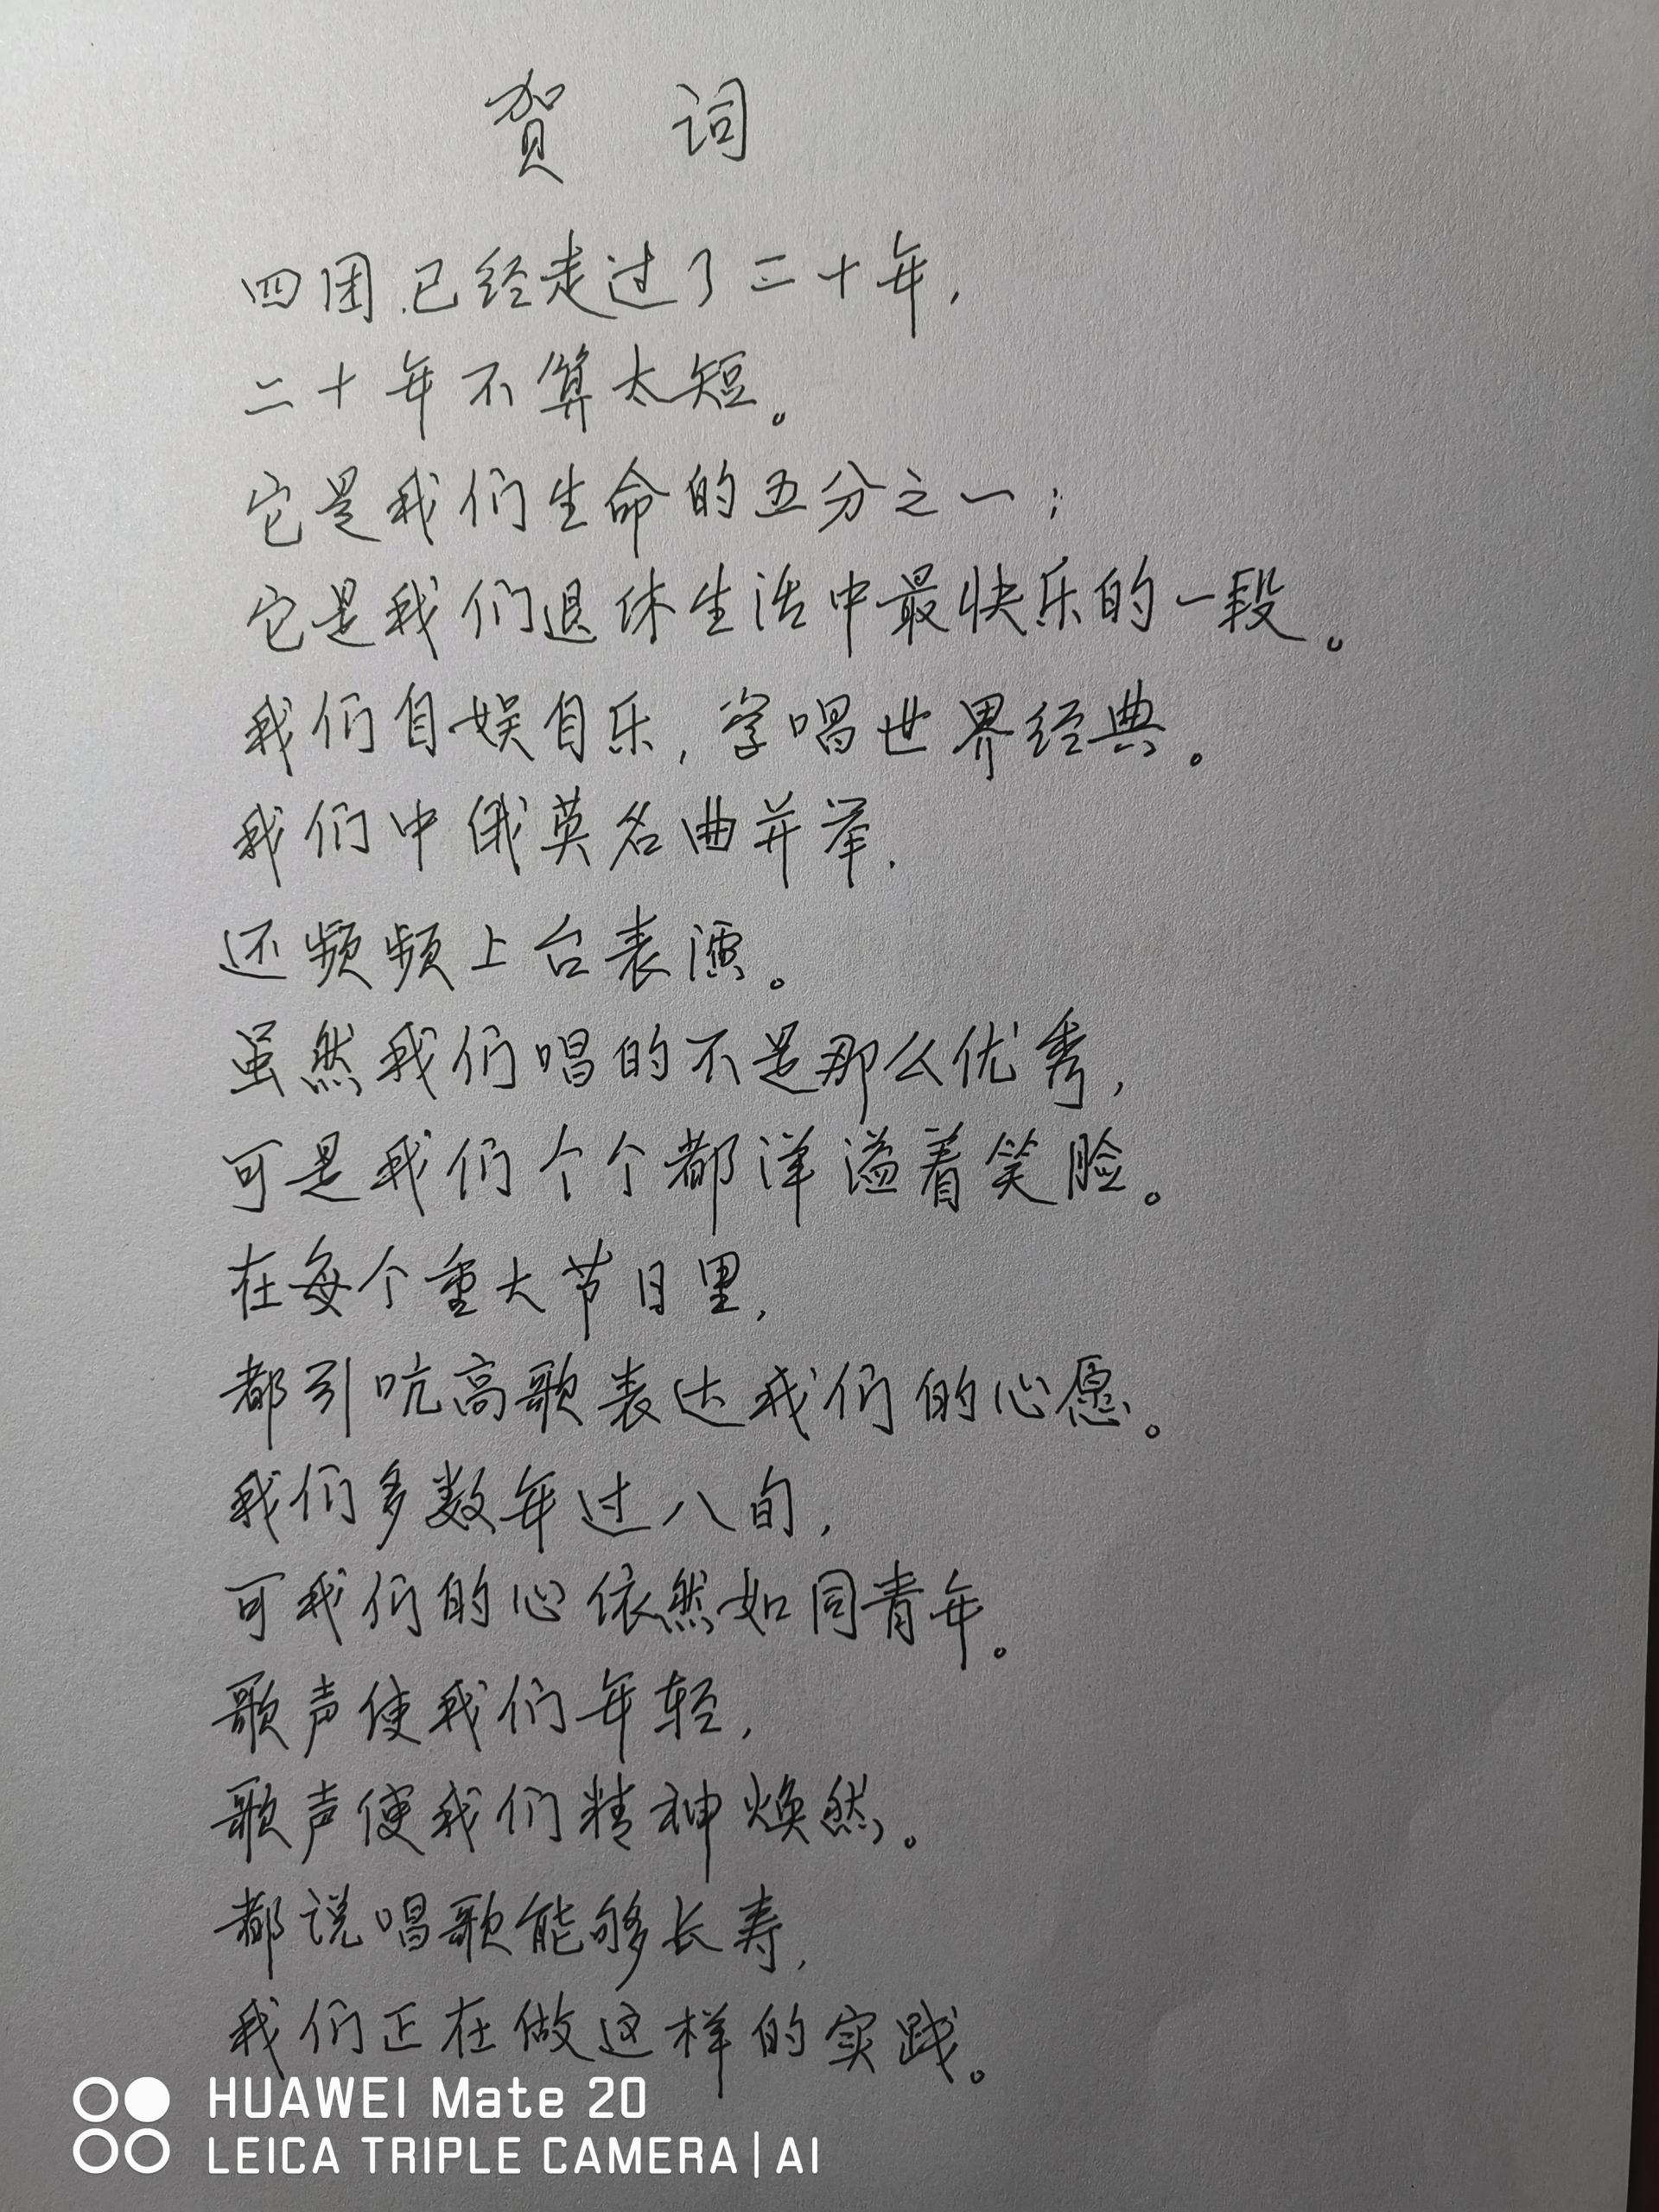 贺 词
四团已经走过了二十年，
二十年不算太短。
它是我们生命的五分之一；
它是我们退休生活中最快乐的一段。
我们自娱自乐，学唱世界经典。
我们中俄英名曲并举，
还频频上台表演。
虽然我们唱的不是那么优秀，
可是我们个个都洋溢着笑脸。
在每个重大节日里，
都引吭高歌表达我们的心愿。
我们多数年过八旬，
可我们的心依然如同青年。
歌声使我们年轻，
歌声使我们精神焕然。
都说唱歌能够长寿，
我们正在做这样的实践。
HUAWEI Mate 20
LEICA TRIPLE CAMERA | AI